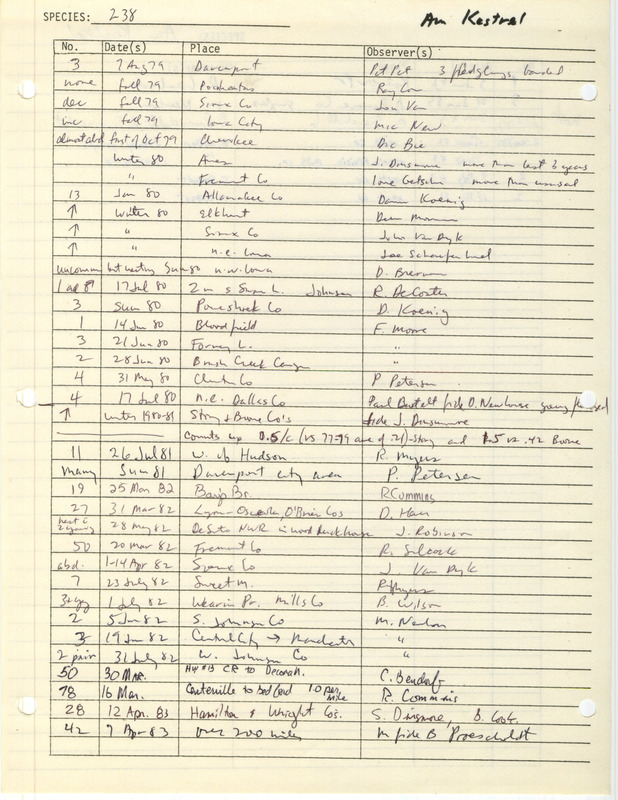 SPECIES: 238 Am Kestrel
No. Date(s) Place Observer(s)
3 7 Aug 79 Davenport Pet Pet 3 fledglings banded
none fall 79 Pocahontas Roy
dec fall 79 Sioux Co Jon Van
inc fall 79 Iowa City Mic New
almost abd first of Oct 79 Cherokee Dic Bie
winter 80 Ames J. Dinsmore more than last 3 years
" Fremont Co more than unusual
13 Jan 80 Allamakee Co Darwin Koenig
↑ Winter 80 Elkhart
↑ " Sioux Co John Van Dyk
↑ " n.e. Iowa
uncommon but nesting Sum 80 n.w. Iowa D. Bierman
1 ad 17 Jul 80 2 m s Swan L. Johnson R. DeCoster
3 Sum 80 Poweshiek Co D. Koenig
1 14 Jun 80 Bloomfield F. Moore
3 21 Jun 80 Forney L. "
2 28 Jun 80 Brush Creek Canyon "
4 31 May 80 Clinton Co P. Petersen
4 17 Jul 80 n.e. Dallas Co Paul fide D. Newhouse young
↑ winter 1980-81 Story & Boone Co's fide J. Dinsmore
counts up 0.5/c (vs 77-79 ave of .21)-Story and 1.5 vs .42 Boone
11 26 Jul 81 W. of Hudson R. Myers
many Sum 81 Davenport city area P. Petersen
19 25 Mar 82 Bays Br. R Cummins
27 31 Mar 82 Lyon-Osceola, O'Brien Cos D. Harr
nest c 2 young 28 May 82 DeSoto NWR in wood duck house J. Robinson
50 20 Mar 82 Fremont Co R. Silcock
abd. 1-14 Apr 82 Sioux Co J. Van Dyk
7 23 July 82 Sweet M. R. Myers
1 July 82 Wearin Pr. Mills Co B. Wilson
2 5 Jun 82 S. Johnson Co M. Newlon
3 19 Jun 82 Central City → Manchester "
2 pair 31 July 82 W. Johnson Co "
50 30 Mar. Hiy #13 CR to Decorah. C. Bendorf
78 16 Mar. Centerville to Bedford 1.0 per mile R. Cummins
28 12 Apr. 83 Hamilton & Wright Co's. S. Dinsmore, B. Cook.
42 7 Apr 83 over 200 miles m fide B Proescholdt